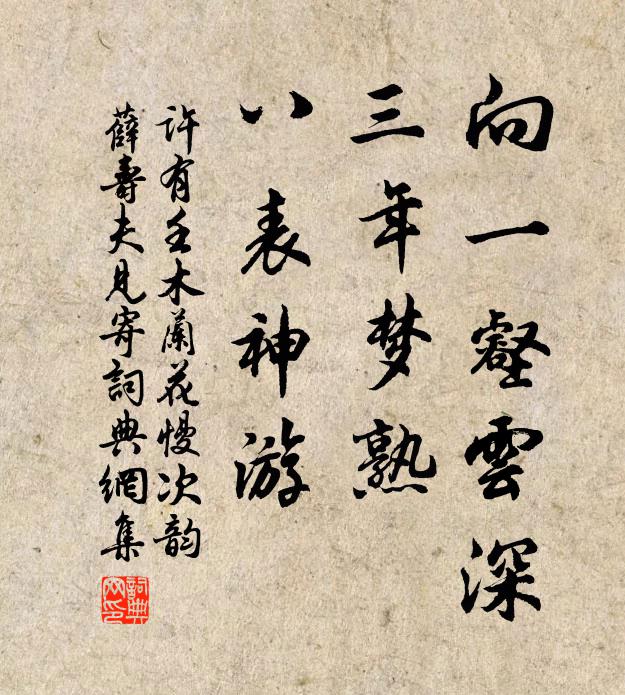 向一壑雲深
三年梦熟
八表神游
許有壬木蘭花慢次韵
薛壽夫見寄詞典網集
詞典网印